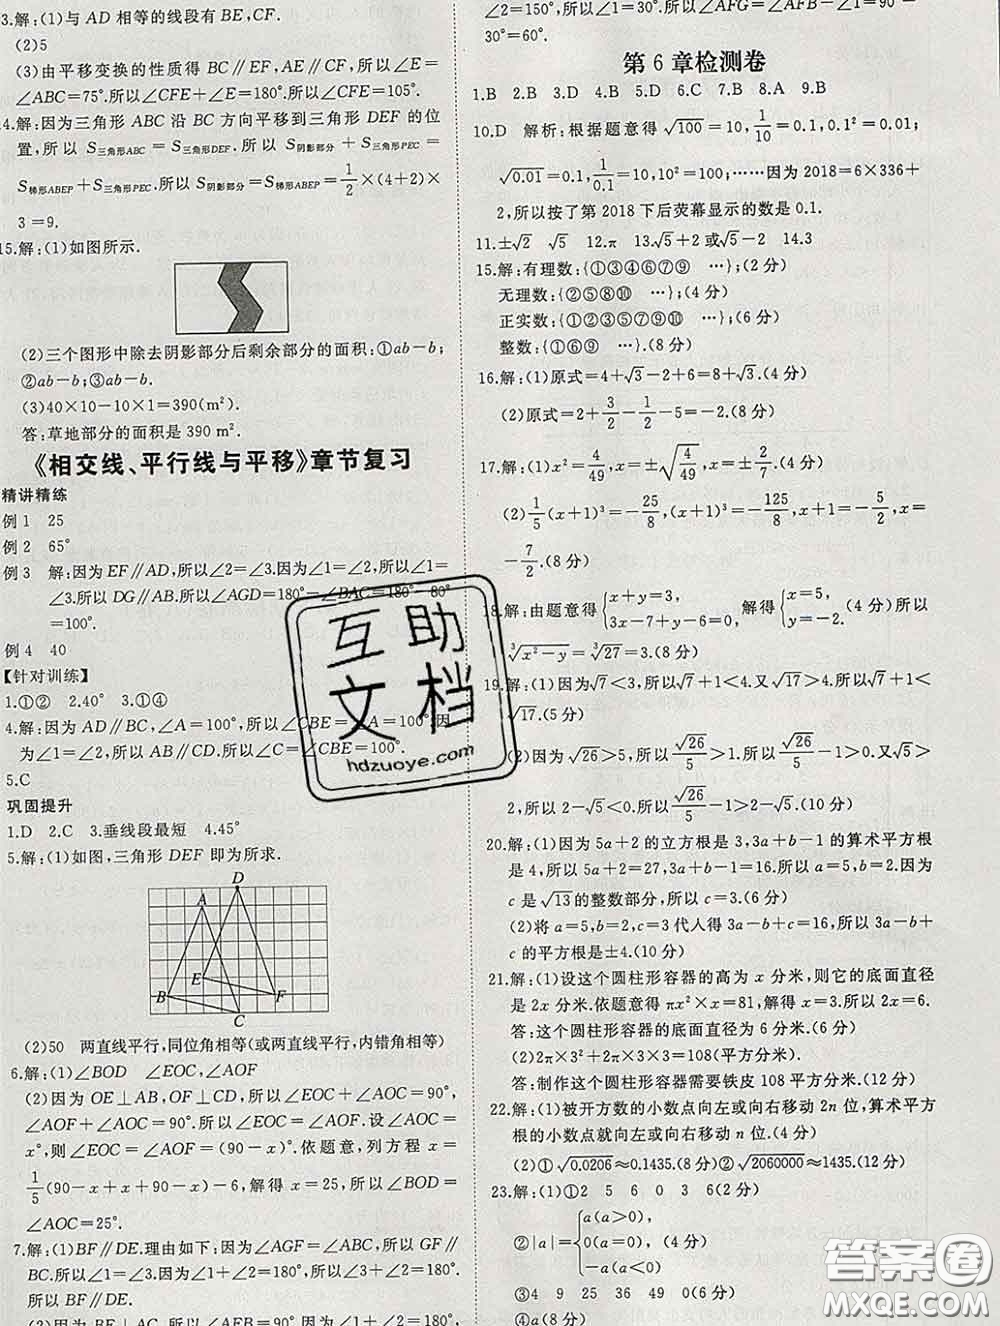 3.解:(1)与 AD 相等的线段有 BE,CF.
(2)5
(3)由平移变换的性质得 BC∥EF,AE∥CF,所以∠E=
∠ABC=75°.所以∠CFE+∠E=180°.所以∠CFE=105°.
14.解:因为三角形 ABC 沿 BC 方向平移到三角形 DEF 的位
置,所以 S三角形ABC=S三角形DEF.所以 S阴影部分+S三角形PEC=
S梯形ABEP+S三角形PEC.所以 S阴影部分=S梯形ABEP=1/2×(4+2)×
3=9.
15.解:(1)如图所示.
(2)三个图形中除去阴影部分后剩余部分的面积:①ab-b;
②ab-b;③ab-b.
(3)40×10-10×1=390(m²).
答:草地部分的面积是 390 m².
《相交线、平行线与平移》章节复习
精讲精练
例 1 25
例 2 65°
例 3 解:因为 EF∥AD,所以∠2=∠3.因为∠1=∠2,所以∠1=
∠3.所以 DG∥AB.所以∠AGD=180°-∠BAC=180°-80°
=100°.
例 4 40
【针对训练】
1.①② 2.40° 3.①④
4.解:因为 AD∥BC,∠A=100°,所以∠CBE=∠A=100°.因
为∠1=∠2,所以 AB∥CD.所以∠C=∠CBE=100°.
5.C
巩固提升
1.D 2.C 3.垂线段最短 4.45°
5.解:(1)如图,三角形 DEF 即为所求.
D
A
E
B F
C
(2)50 两直线平行,同位角相等(或两直线平行,内错角相等)
6.解:(1)∠BOD ∠EOC,∠AOF
(2)因为 OE⊥AB,OF⊥CD,所以∠EOC+∠AOC=90°,
∠AOF+∠AOC=90°.所以∠EOC=∠AOF.设∠AOC=
x°,则∠EOC=∠AOF=(90-x)°.依题意,列方程 x=
1/5(90-x+x+90-x)-6,解得 x=25,所以∠BOD=
∠AOC=25°.
7.解:(1)BF∥DE.理由如下:因为∠AGF=∠ABC,所以 GF∥
BC.所以∠1=∠3.因为∠1+∠2=180°,所以∠3+∠2=180°.
所以 BF∥DE.
(2)因为 BF⊥AC,所以∠AFB=90°.因为∠1+∠2=180°,
∠2=150°,所以∠1=30°.所以∠AFG=∠AFB-∠1=90°-
30°=60°.
第 6 章检测卷
1.B 2.B 3.D 4.B 5.D 6.C 7.B 8.A 9.B
10.D 解析:根据题意得 √100=10,1/10=0.1,0.1²=0.01;
√0.01=0.1,1/0.1=10,10²=100;……因为 2018=6×336+
2,所以按了第 2018 下后荧幕显示的数是 0.1.
11.±√2 √5 12.π 13.√5+2 或√5-2 14.3
15.解:有理数:{①③④⑥⑦⑨ …};(2 分)
无理数:{②⑤⑧⑩ …};(4 分)
正实数:{①③⑤⑥⑦⑧⑨⑩ …};(6 分)
整数:{①⑥⑨ …}.(8 分)
16.解:(1)原式=4+√3-2+6=8+√3.(4 分)
(2)原式=2+3/2-1/2-5=-2.(8 分)
17.解:(1)x²=4/49,x=±√(4/49)=±2/7.(4 分)
(2)1/5(x+1)³=-25/8,(x+1)³=-125/8,x+1=-5/2,x=
-7/2.(8 分)
18.解:由题意得{x+y=3, 3x-7+y-6=0; 解得{x=5, y=-2. (4 分)所以
∛(x²-y)=∛27=3.(8 分)
19.解:(1)因为√7<3,所以√7+1<4.又√17>4.所以√7+1<
√17.(5 分)
(2)因为 √26>5,所以 √26/5>1.所以 √26/5-1>0.又√5>
2,所以 2-√5<0.所以 √26/5-1>2-√5.(10 分)
20.解:(1)因为 5a+2 的立方根是 3,3a+b-1 的算术平方根
是 4,所以 5a+2=27,3a+b-1=16.所以 a=5,b=2.因为
c 是 √13 的整数部分,所以 c=3.(6 分)
(2)将 a=5,b=2,c=3 代人得 3a-b+c=16,所以 3a-b+
c 的平方根是±4.(10 分)
21.解:(1)设这个圆柱形容器的高为 x 分米,则它的底面直径
是 2x 分米.依题意得 πx²×x=81,解得 x=3.所以 2x=6.
答:这个圆柱形容器的底面直径为 6 分米.(6 分)
(2)2π×3²+2π×3×3=108(平方分米).
答:制作这个圆柱形容器需要铁皮 108 平方分米.(12 分)
22.解:(1)被开方数的小数点向左或向右移动 2n 位,算术平方
根的小数点就向左或向右移动 n 位.(4 分)
(2)①√0.0206≈0.1435.(8 分)②√2060000≈1435.(12 分)
23.解:(1)①2 5 6 0 3 6(2 分)
②|a|={a(a>0), 0(a=0), -a(a<0) (4 分)
③4 9 25 36 49 0(6 分)
④a(8 分)
互助
文档
hdzuoye.com
答案圈
MXQE.COM